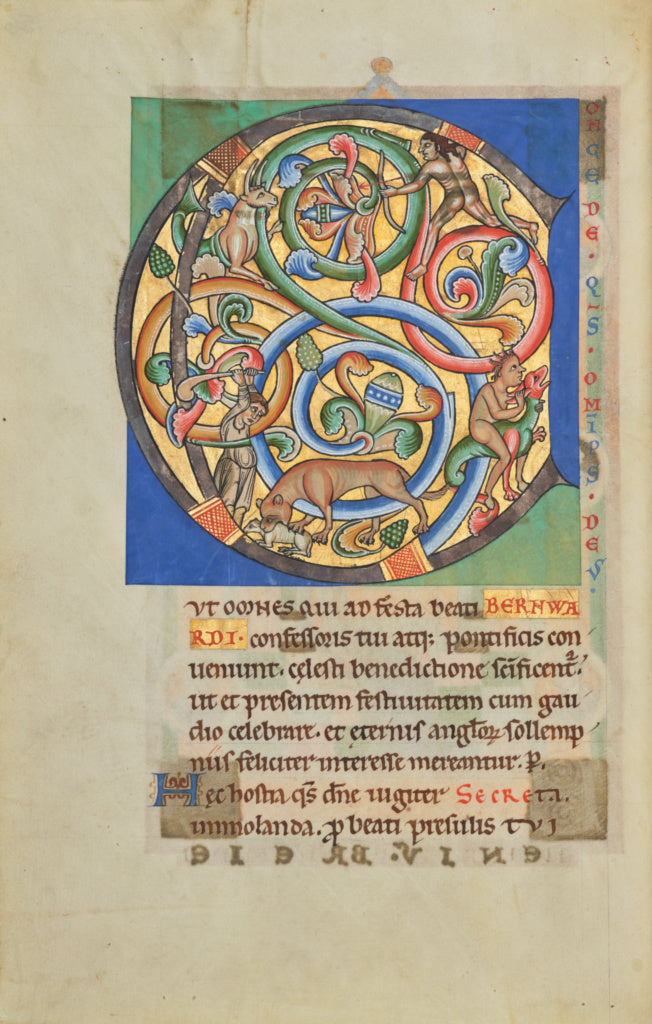 C
ONCE DE · Q̄S · OM̄IPS · DEVS ·
VT OMNES QUI AD festa beati BERNWA
RDI · confessoris tui atq; pontificis con
ueniunt · celesti benedictione sc̄ificent᷑ ·
ut et presentem festiuitatem cum gau
dio celebrare · et eternis anglorꝝ sollemp
niis feliciter interesse mereantur · P̄.
Hec hostia q̄s dn̄e iugiter SECRETA.
immolanda · p̄ beati presulis TVI